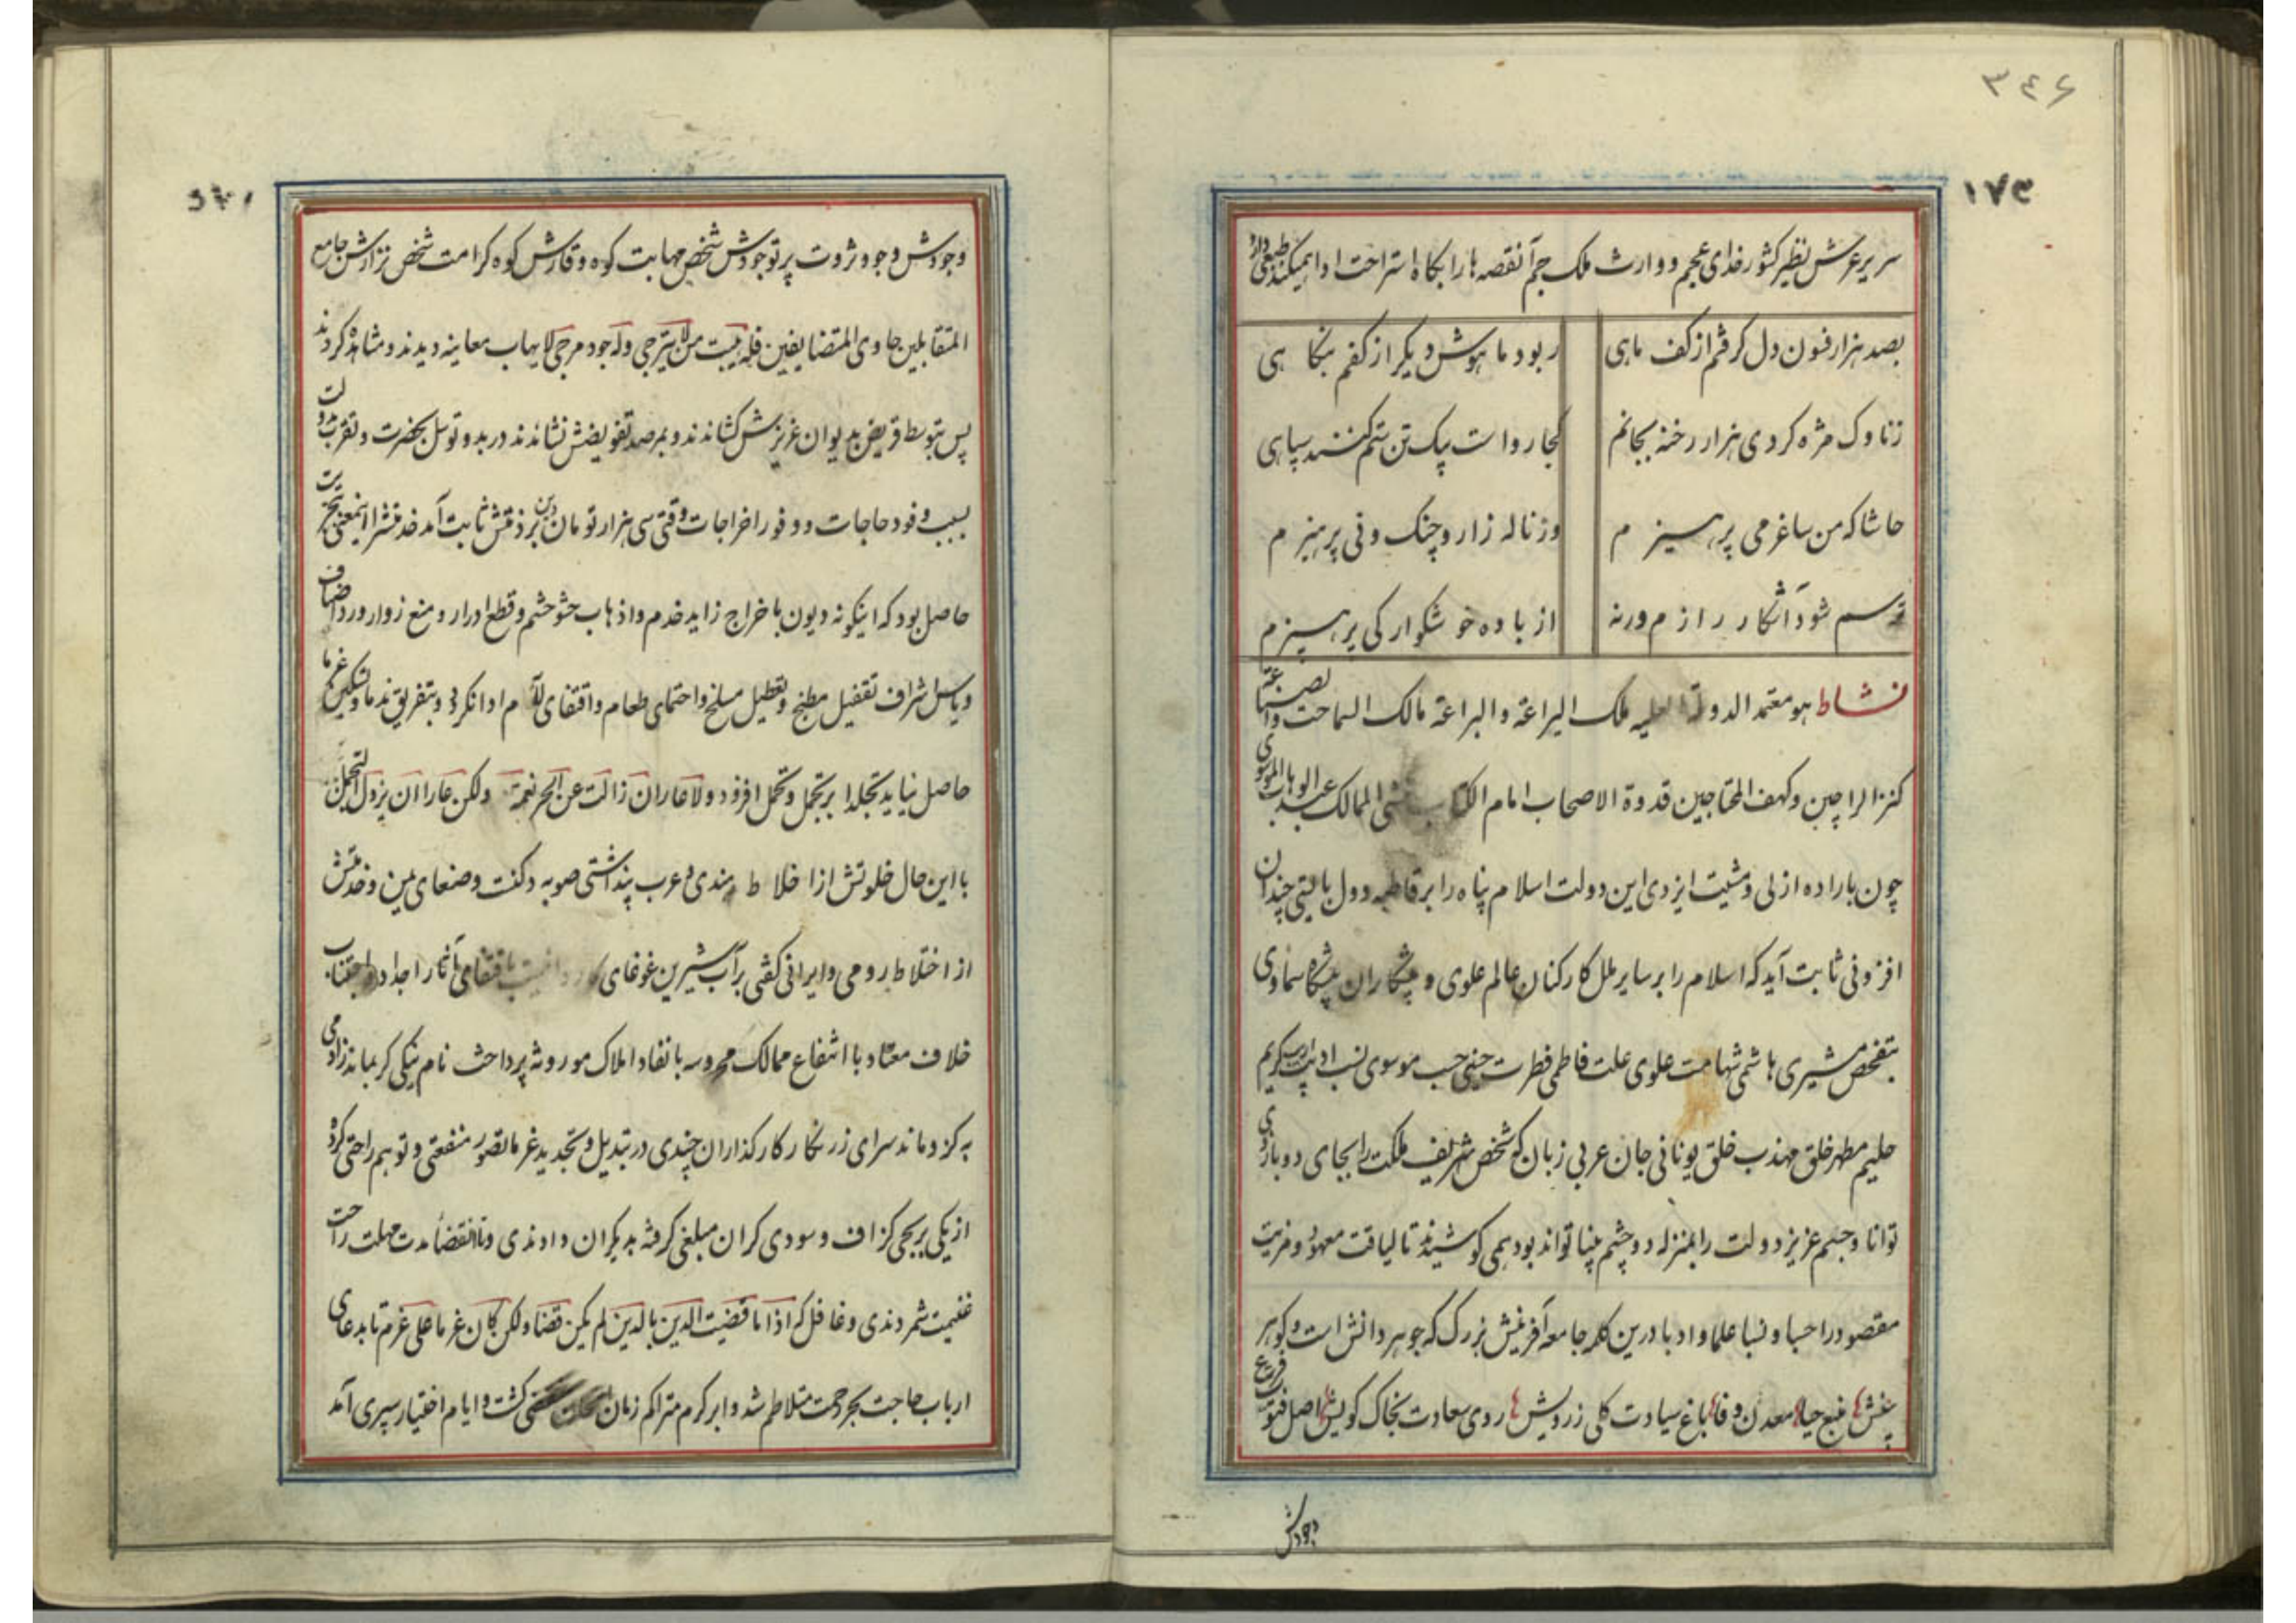 ٣٤۶
١٧٣
سریر عرش نظیر کشور خدای عجم و وارث ملک جم آنقصه ها را بگاه استراحت ادا میکند طبعی دارد
بصد هزار فسون دل گرفتم از کف ماهی
ربود ماهوش دیگر از کفم بنگاهی
زناوک مژه کردی هزار رخنه بجانم
کجا رواست بیک تن ستم کنند سپاهی
حاشا که من ساغر می پرهیزم
وز ناله زار و چنگ و نی پرهیزم
ترسم شود آشکار رازم ورنه
از باده خوشگوار کی پرهیزم
نشاط هو معتمد الدولة العلیه ملک الیراعة والبراعة مالک السماحت
کنز الراجین و کهف المحتاجین قدوة الاصحاب امام الکتاب منشی الممالک عبد الوهاب الموسوی
چون باراده ازلی و مشیت ایزدی این دولت اسلام پناه را بر قاطبه دول بالیتی چندان
افزونی ثابت آید که اسلام را بر سایر ملل کارکنان عالم علوی و پیشکاران پیشگاه سماوی
بتفحص مشیری هاشمی شهامت علوی علت فاطمی فطرت حسنی حسب موسوی نسب ادیب کریم
حلیم مطهر خلق مهذب خلق یونانی جان عربی زبان که شخص شریف ملکت را بجای دو بازوی
توانا و جسم عزیز دولت را بمنزله دو چشم بینا تواند بود همی کوشیدند تا لیاقت معهود و مزیت
مقصود را حسبا و نسبا علما و ادبا درین کلمه جامعه آفرینش بزرگ که جوهر دانش است و گوهر
بینش منبع حیا معدن وفا باغ سیادت گلی ز رویش روی سعادت بخاک کویش اصل فتوت
وجودش
١٧٣
وجودش وجود و ثروت پرتو جودش شخص مهابت کوه وقارش کوه کرامت شخص نزارش جامع
المتقابلین حاوی المتضایفین فله هیبت من لا یترجی وله جود مرجی لا یهاب معاینه دیدند و مشاهده کردند
پس بتوسط قریض بدیوان عزیزش کشاندند و بمرصد تفویضش نشاندند در بدو توسل بحضرت و تقرب بدولت
بسبب وفود حاجات و وفور اخراجات وقتی سی هزار تومان دین بر ذمتش ثابت آمد خدمتش را اینمعنی بتجربت
حاصل بود که اینگونه دیون باخراج زاید خدم و اذهاب حشو حشم و قطع ادرار و منع زوار و رد اضیاف
و یاس اشراف تقفیل مطبخ و تعطیل مسلخ و احتمای طعام و اقتفای لئام ادا نگردد و بتفریق ندما تسکین غرما
حاصل نیاید تجلدا بر تجمل و تحمل افزود ولا عار ان زالت عن الحر نعمة ولکن عارا ان یزول التجمل
با این حال خلوتش از اخلاط هندی و عرب پنداشتی صوبه دکنت و صنعای یمن و خدمتش
از اختلاط رومی و ایرانی گفتی بر آب شیرین غوغای باقتفای آثار اجداد و اجتناب
خلاف معتاد با اشفاع ممالک محروسه بانفاد املاک موروثه پرداخت نام نیکی گر بماند ز آدمی
به کزو ماند سرای زرنگار کارگذاران چندی در تبدیل و تجدید غرما تصور منفعتی و توهم راحتی کرده
از یکی بربحی گزاف و سودی گران مبلغی گرفته بدیگران دادندی و تا انقضا مدت مهلت راحت
غنیمت شمردندی و غافل که اذا ما قضیت الدین بالدین لم یکن قضا ولکن کان غرما علی غرم تا بدعای
ارباب حاجت بحر رحمت متلاطم شد و ابر کرم متراکم زمان گشت و ایام اختیار سپری آمد